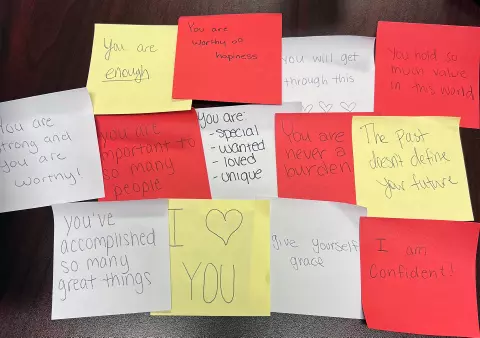 You are
enough
You are
worthy of
happiness
you will get
through this
You hold so
much value
in this world
You are
strong and
you are
worthy!
You are
important to
so many
people
You are:
-special
-wanted
-loved
-unique
You are
never a
burden
The Past
doesn't define
your future
You've
accomplished
so many
great things
I ♡
YOU
give yourself
grace
I am
Confident!